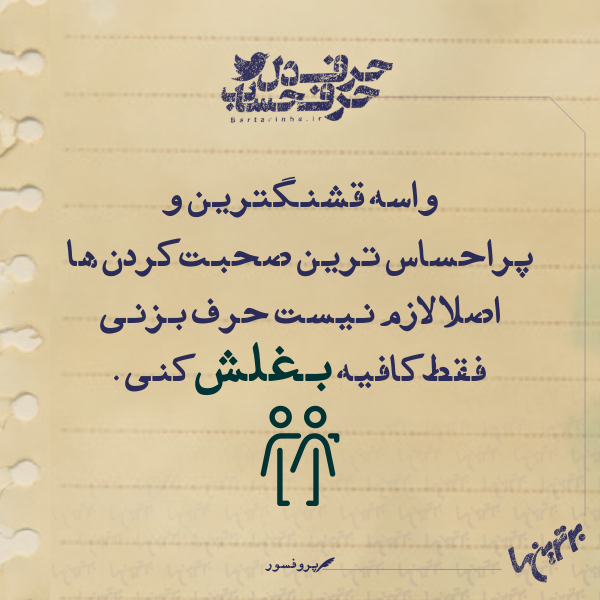 حرف دل
حرف حساب
Bartarinha.ir
واسه قشنگترین و
پراحساس ترین صحبت کردن ها
اصلا لازم نیست حرف بزنی
فقط کافیه بغلش کنی.
پروفسور
برترین‌ها